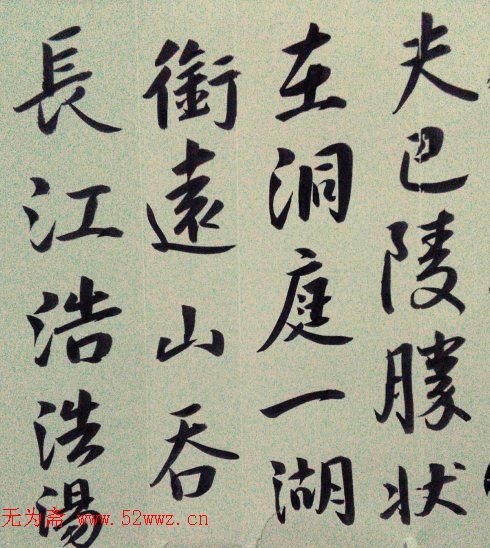 夫巴陵勝状
在洞庭一湖
銜遠山吞
長江浩浩湯
无为斋 www.52wwz.cn